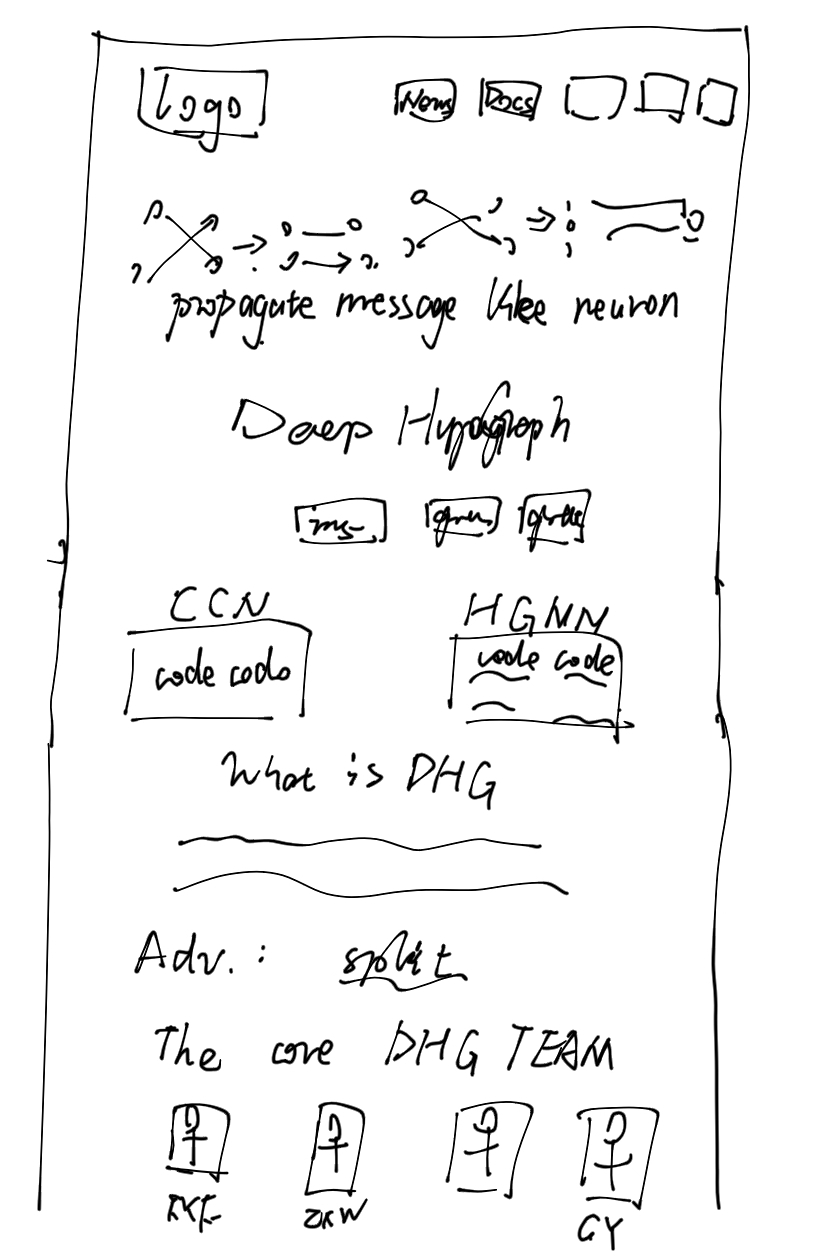 Logo
News Docs
propagate message like neuron
Deep Hypergraph
ins
CCN HGNN
code code code code
What is DHG
Adv. : split
The core DHG TEAM
GY